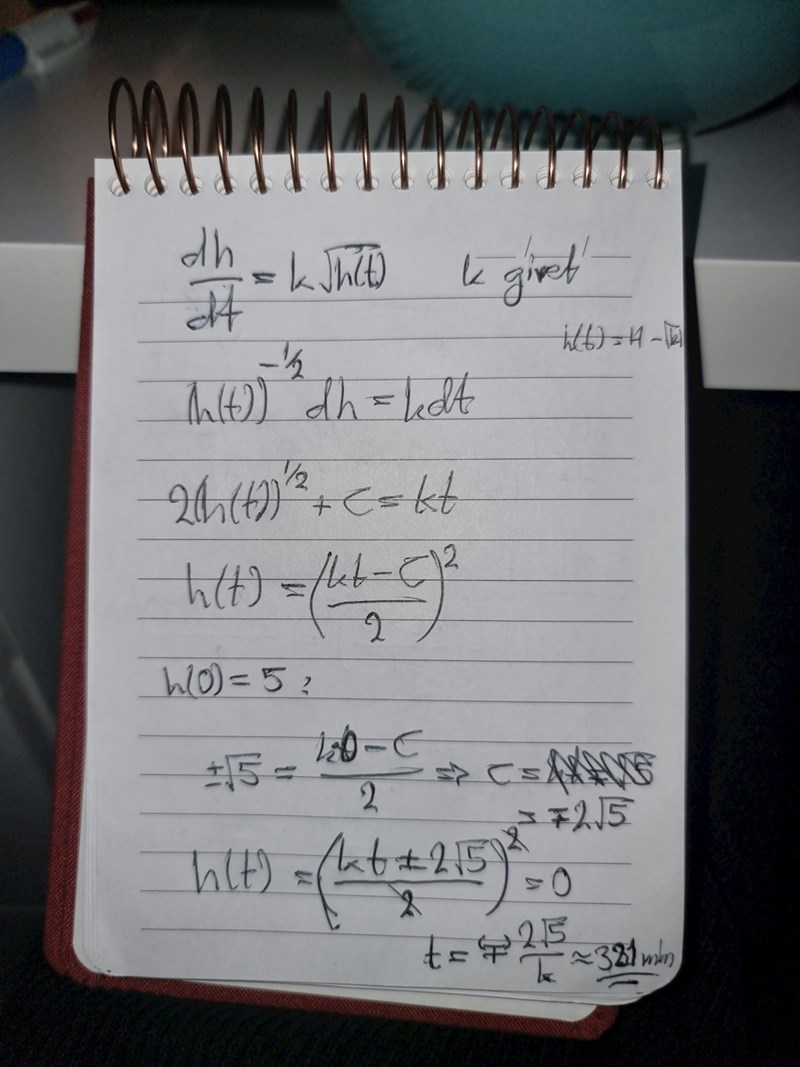 dh/dt = k√h(t) k givet
h(t) = H - √k
(h(t))^-1/2 dh = kdt
2(h(t))^1/2 + C = kt
h(t) = ((kt - C)/2)^2
h(0) = 5 :
±√5 = (k0 - C)/2 ⇒ C =
= ∓2√5
h(t) = ((kt ± 2√5)/2)^2 = 0
t = (∓) 2√5/k ≈ 321 min